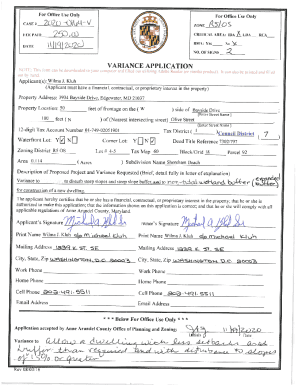 For Office Use Only
CASE #
FEE PAID 250.00
DATE 11/19/2020
For Office Use Only
ZONE R5/OS
CRITICAL AREA: IDA LDA RCA
NO. OF SIGNS 2
VARIANCE APPLICATION
Applicant(s): Wilma J. Kluh
(Applicant must have a financial, contractual, or proprietary interest in the property)
Property Address: 3934 Bayside Drive, Edgewater, MD 21037
Property Location: 50 feet of frontage on the (W side of Bayside Drive
100 feet (N of (Nearest intersecting street) Olive Street
12-digit Tax Account Number Tax District Council District 7
Waterfront Lot Y N Corner Lot Y N Deed Title Reference
Zoning District Lot # Tax Map 60 Block/Grid Parcel 92
Area 0.114 (Acres) Subdivision Name Shoreham Beach
Description of Proposed Project and Variance Requested (Brief, detail fully in letter of explanation)
Variance to disturb steep slopes and steep slope buffer and non-tidal wetland buffer (expanded buffer)
for construction of a new dwelling.
The applicant hereby certifies that he or she has a financial, contractual, or proprietary interest in the property; that he or she is
authorized to make this application; that the information shown on this application is correct; and that he or she will comply with all
applicable regulations of Anne Arundel County, Maryland.
Applicant's Signature Owner's Signature
Print Name Wilma J. Kluh c/o Michael Kluh Print Name Wilma J. Kluh c/o Michael Kluh
Mailing Address 1339 E ST. SE Mailing Address 1339 E ST. SE
City, State, Zip WASHINGTON, D.C 20003 City, State, Zip WASHINGTON, D.C 20003
Work Phone Work Phone
Home Phone Home Phone
Cell Phone 202-491-5511 Cell Phone 202-491-5511
Email Address Email Address
*** Below For Office Use Only ***
Application accepted by Anne Arundel County Office of Planning and Zoning: 11/19/2020
Variance to allow a dwelling with less setbacks and
buffer than required and with disturbance to slopes
of 15% or greater